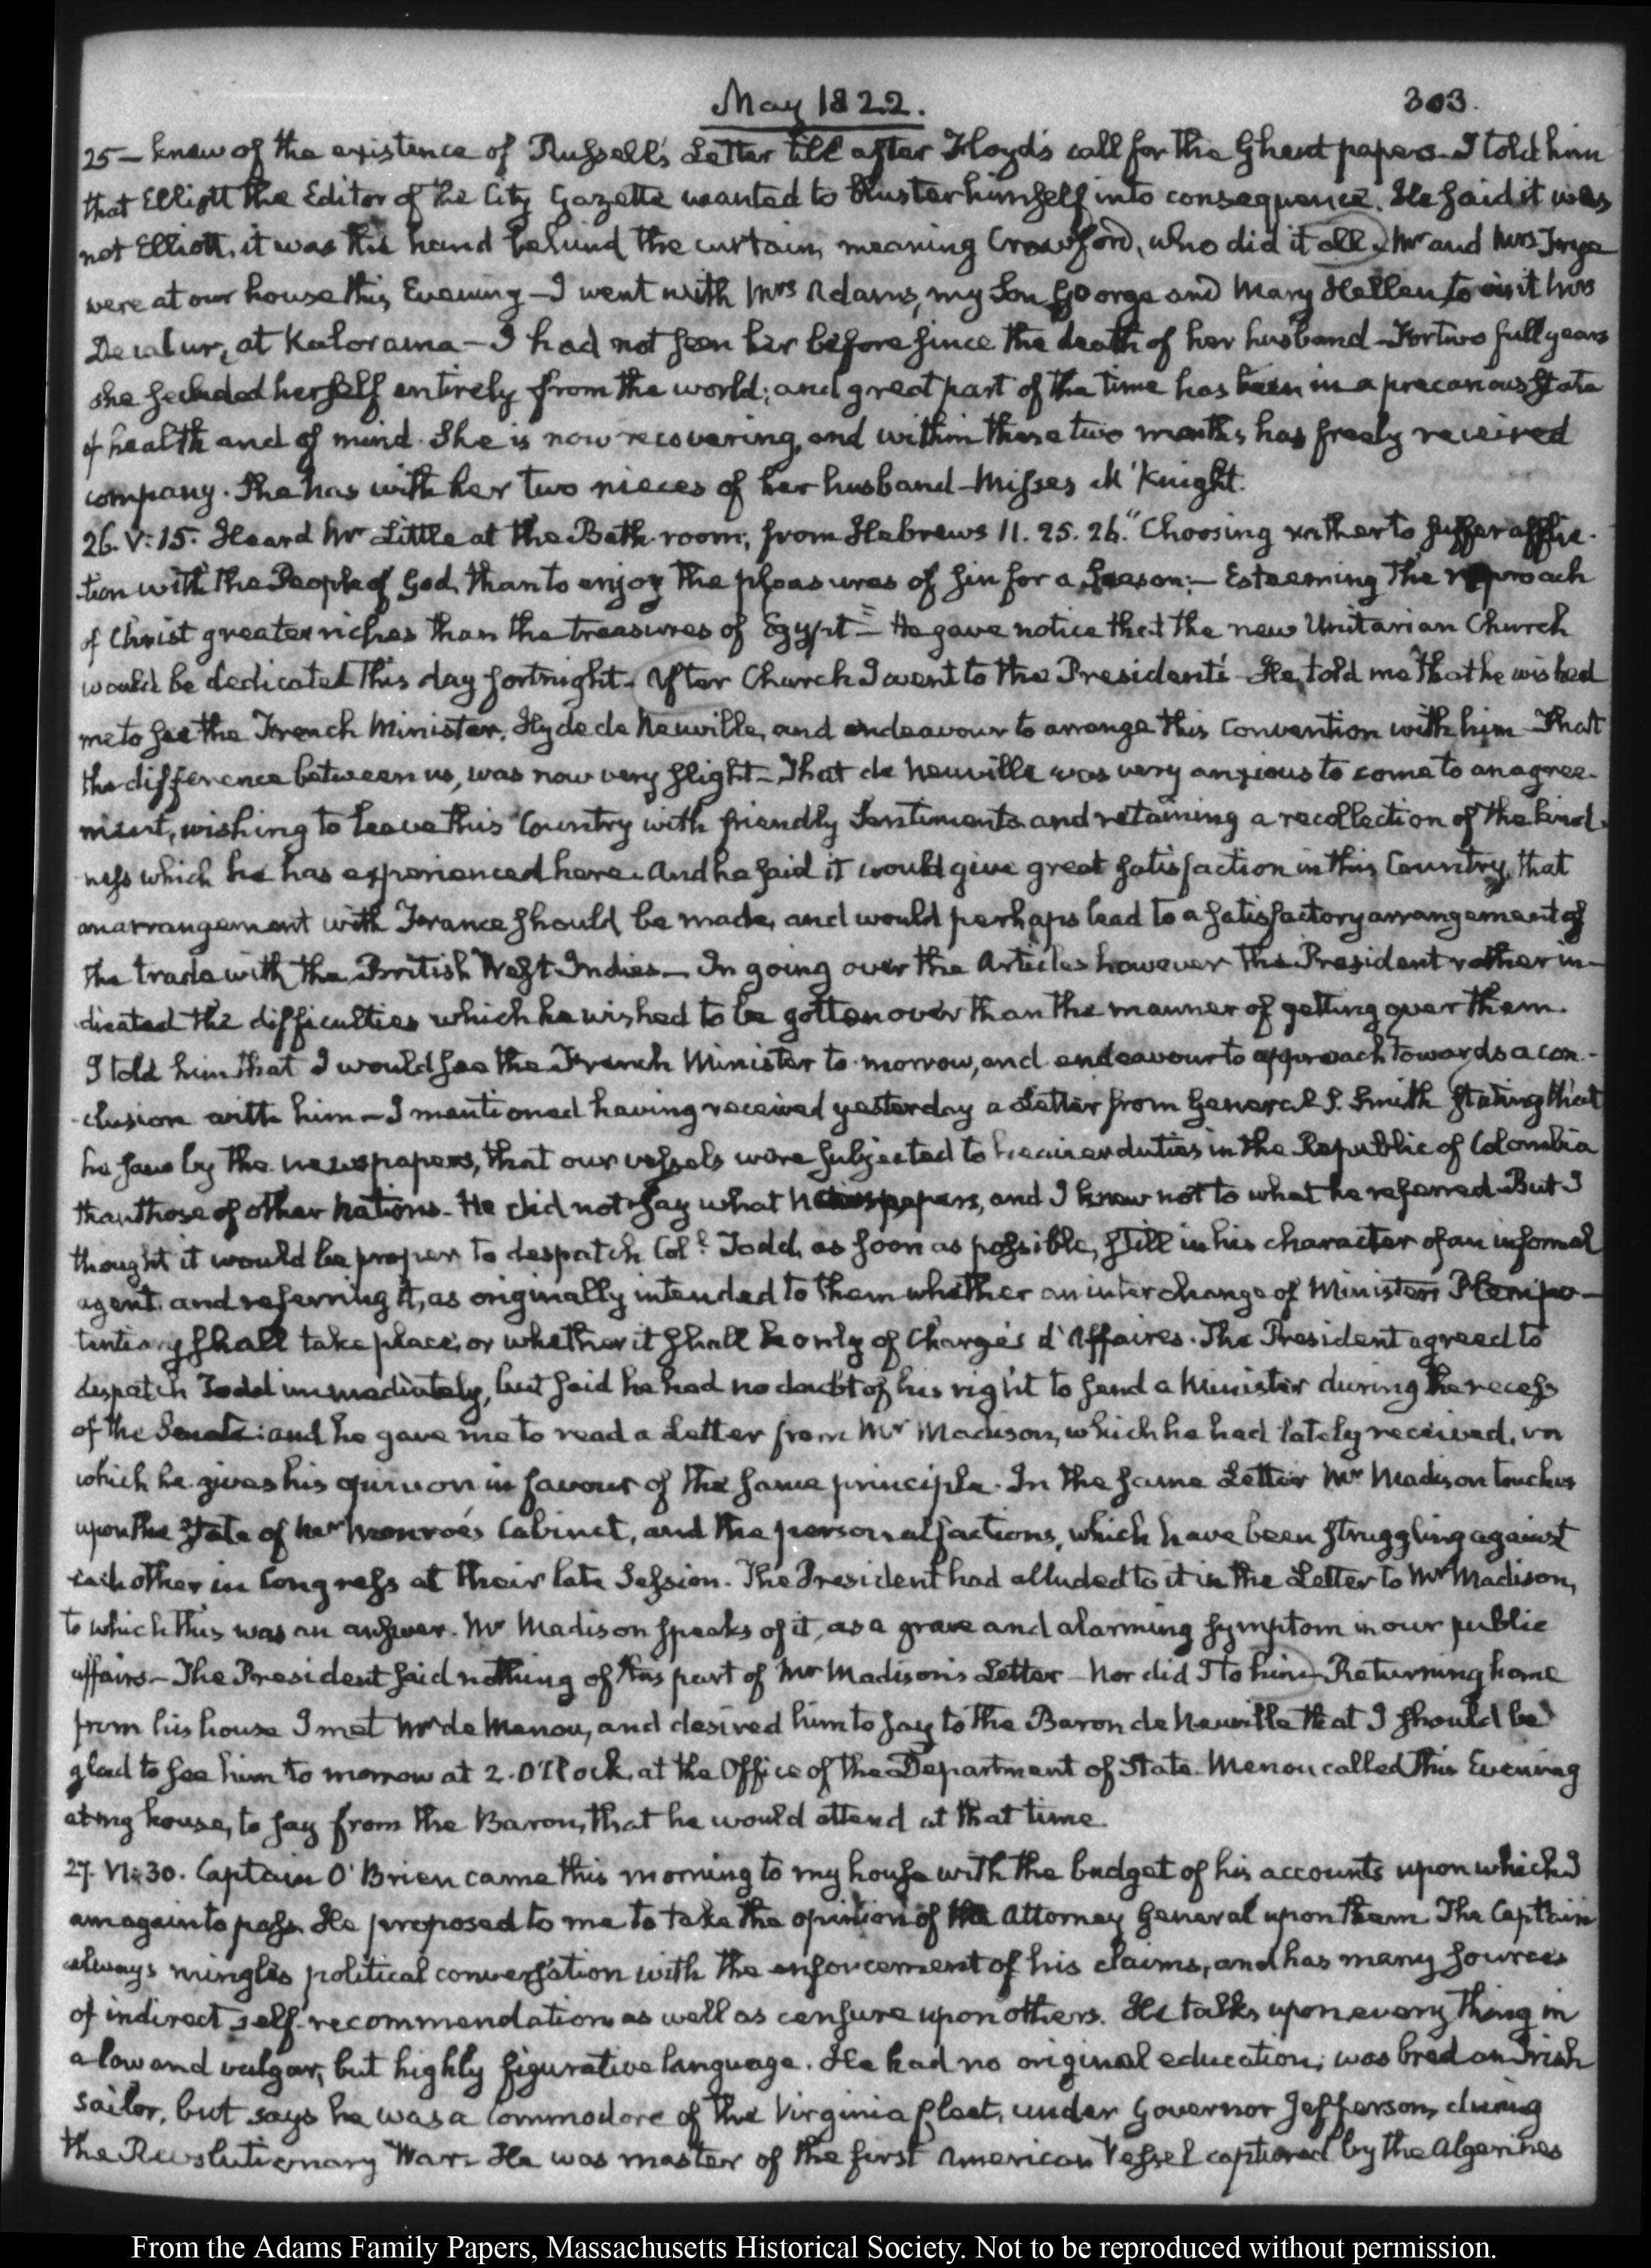 May 1822.
303.
25 — knew of the existence of Russell's Letter till after Floyd's call for the Ghent papers. I told him
that Elliott the Editor of the City Gazette wanted to bluster himself into consequence. He said it was
not Elliott, it was the hand behind the curtain, meaning Crawford, who did it all. Mr and Mrs Frye
were at our house this Evening — I went with Mrs Adams, my Son George and Mary Hellen to visit Mrs
Decatur, at Kalorama — I had not seen her before since the death of her husband — For two full years
she secluded herself entirely from the world; and great part of the time has been in a precarious State
of health and of mind. She is now recovering, and within these two months has freely received
company. She has with her two nieces of her husband — Misses McKnight.
26. V:15. Heard Mr Little at the Bath-room, from Hebrews 11. 25. 26. "Choosing rather to suffer afflic-
tion with the People of God, than to enjoy the pleasures of sin for a Season; — Esteeming the reproach
of Christ greater riches than the treasures of Egypt" — He gave notice that the new Unitarian Church
would be dedicated this day fortnight. After Church I went to the President's — He told me that he wished
me to see the French Minister, Hyde de Neuville, and endeavour to arrange this Convention with him — That
the difference between us, was now very slight — That de Neuville was very anxious to come to an agree-
ment, wishing to leave this Country with friendly Sentiments and retaining a recollection of the kind-
ness which he has experienced here. And he said it would give great satisfaction in this Country, that
an arrangement with France should be made, and would perhaps lead to a satisfactory arrangement of
the trade with the British West-Indies — In going over the Articles however the President rather in-
dicated the difficulties which he wished to be gotten over than the manner of getting over them.
I told him that I would see the French Minister to-morrow, and endeavour to approach towards a con-
clusion with him — I mentioned having received yesterday a Letter from General S. Smith stating that
he saw by the newspapers, that our vessels were subjected to heavier duties in the Republic of Colombia
than those of other Nations — He did not say what Newspapers, and I knew not to what he referred — But I
thought it would be proper to despatch Coll. Todd, as soon as possible, still in his character of an informal
agent, and referring it, as originally intended to them whether an interchange of Ministers Plenipo-
tentiary shall take place, or whether it shall be only of Chargés d'Affaires. The President agreed to
despatch Todd immediately, but said he had no doubt of his right to send a Minister during the recess
of the Senate: and he gave me to read a Letter from Mr Madison, which he had lately received, in
which he gives his opinion in favour of the same principle. In the same Letter Mr Madison touches
upon the State of Mr Monroe's Cabinet, and the personal factions, which have been struggling against
each other in Congress at their late Session. The President had alluded to it in the Letter to Mr Madison,
to which this was an answer. Mr Madison speaks of it, as a grave and alarming symptom in our public
affairs — The President said nothing of this part of Mr Madison's Letter — Nor did I to him — Returning home
from his house I met Mr de Menou, and desired him to say to the Baron de Neuville that I should be
glad to see him to morrow at 2. O'Clock, at the Office of the Department of State. Menou called this Evening
at my house, to say from the Baron, that he would attend at that time.
27. VI:30. Captain O'Brien came this morning to my house with the budget of his accounts upon which I
am again to pass. He proposed to me to take the opinion of the Attorney General upon them. The Captain
always mingles political conversation with the enforcement of his claims, and has many sources
of indirect self-recommendation as well as censure upon others. He talks upon every thing in
a low and vulgar, but highly figurative language. He had no original education; was bred an Irish
sailor, but says he was a Commodore of the Virginia fleet, under Governor Jefferson, during
the Revolutionary War. He was master of the first American Vessel captured by the Algerines
From the Adams Family Papers, Massachusetts Historical Society. Not to be reproduced without permission.